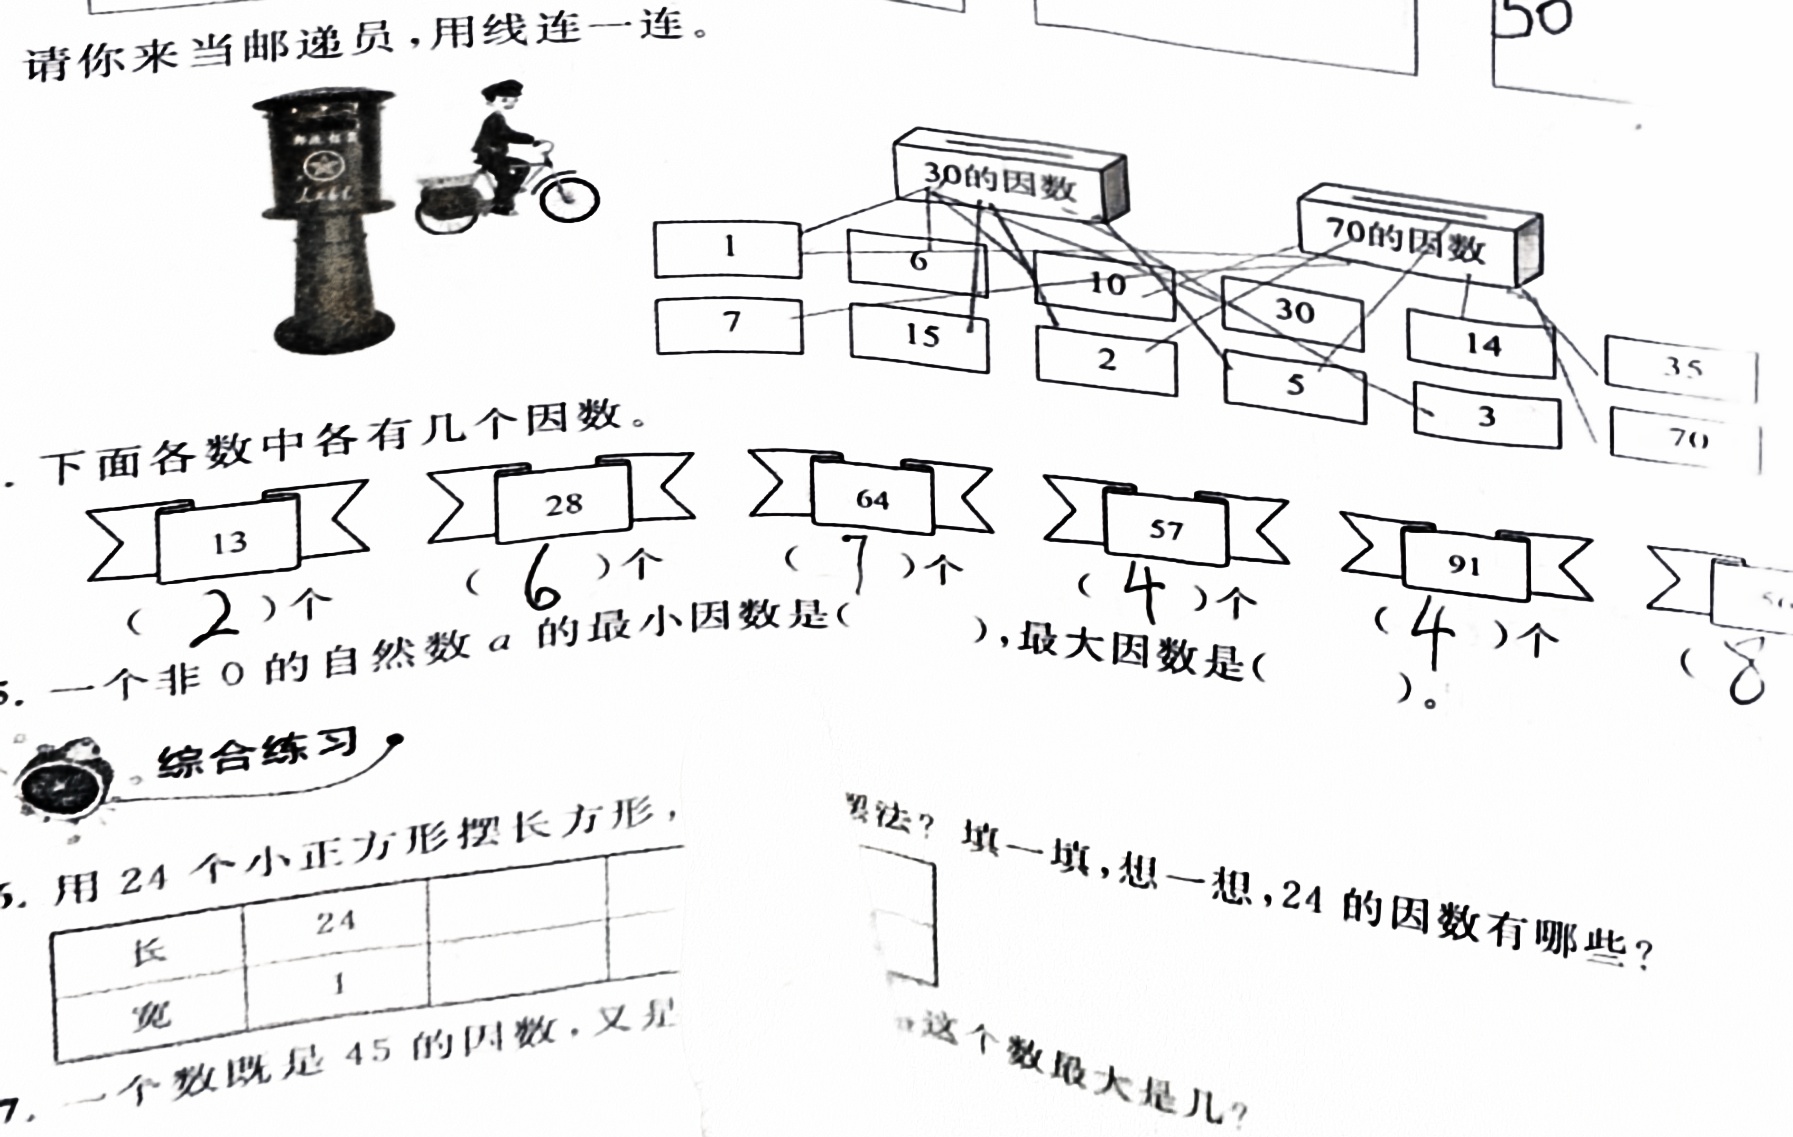 50
请你来当邮递员,用线连一连。
30的因数
70的因数
1 6 10 30 14 35
7 15 2 5 3 70
. 下面各数中各有几个因数。
13 28 64 57 91
( 2 )个 ( 6 )个 ( 7 )个 ( 4 )个 ( 4 )个 ( 8
5. 一个非 0 的自然数 a 的最小因数是( ),最大因数是( )。
综合练习
6. 用 24 个小正方形摆长方形, 法? 填一填,想一想,24 的因数有哪些?
长 24
宽 1
7. 一个数既是 45 的因数,又是 这个数最大是几?